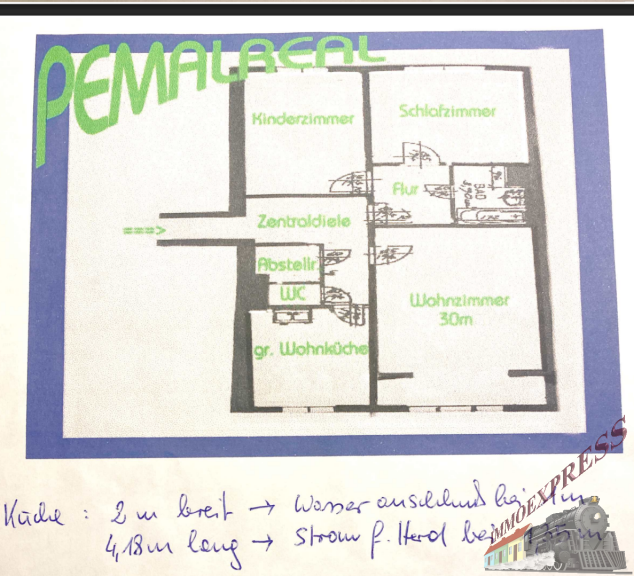 PEMALREAL
Kinderzimmer
Schlafzimmer
Flur
BAD
Zentraldiele
===>
Abstellr.
WC
Wohnzimmer
30m
gr. Wohnküche
IMMOEXPRESS
Küche : 2 m breit → Wasseranschluß bei 1m
4,18m lang → Strom f. Herd bei